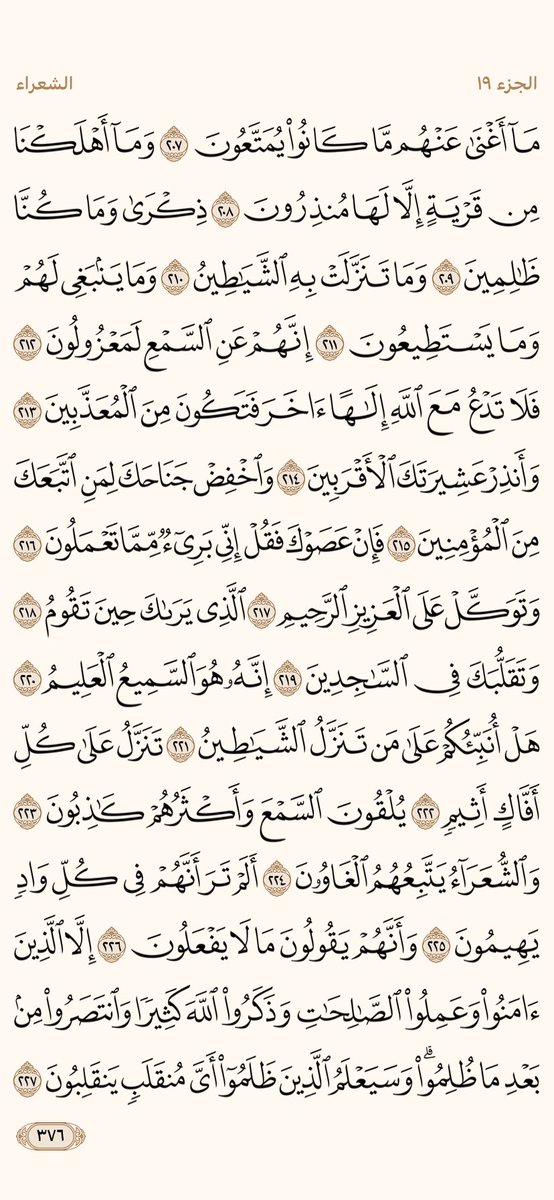 الجزء ١٩
الشعراء
مَآ أَغْنَىٰ عَنْهُم مَّا كَانُوا۟ يُمَتَّعُونَ ٢٠٧ وَمَآ أَهْلَكْنَا
مِن قَرْيَةٍ إِلَّا لَهَا مُنذِرُونَ ٢٠٨ ذِكْرَىٰ وَمَا كُنَّا
ظَٰلِمِينَ ٢٠٩ وَمَا تَنَزَّلَتْ بِهِ ٱلشَّيَٰطِينُ ٢١٠ وَمَا يَنۢبَغِى لَهُمْ
وَمَا يَسْتَطِيعُونَ ٢١١ إِنَّهُمْ عَنِ ٱلسَّمْعِ لَمَعْزُولُونَ ٢١٢
فَلَا تَدْعُ مَعَ ٱللَّهِ إِلَٰهًا ءَاخَرَ فَتَكُونَ مِنَ ٱلْمُعَذَّبِينَ ٢١٣
وَأَنذِرْ عَشِيرَتَكَ ٱلْأَقْرَبِينَ ٢١٤ وَٱخْفِضْ جَنَاحَكَ لِمَنِ ٱتَّبَعَكَ
مِنَ ٱلْمُؤْمِنِينَ ٢١٥ فَإِنْ عَصَوْكَ فَقُلْ إِنِّى بَرِىٓءٌ مِّمَّا تَعْمَلُونَ ٢١٦
وَتَوَكَّلْ عَلَى ٱلْعَزِيزِ ٱلرَّحِيمِ ٢١٧ ٱلَّذِى يَرَىٰكَ حِينَ تَقُومُ ٢١٨
وَتَقَلُّبَكَ فِى ٱلسَّٰجِدِينَ ٢١٩ إِنَّهُۥ هُوَ ٱلسَّمِيعُ ٱلْعَلِيمُ ٢٢٠
هَلْ أُنَبِّئُكُمْ عَلَىٰ مَن تَنَزَّلُ ٱلشَّيَٰطِينُ ٢٢١ تَنَزَّلُ عَلَىٰ كُلِّ
أَفَّاكٍ أَثِيمٍ ٢٢٢ يُلْقُونَ ٱلسَّمْعَ وَأَكْثَرُهُمْ كَٰذِبُونَ ٢٢٣
وَٱلشُّعَرَآءُ يَتَّبِعُهُمُ ٱلْغَاوُۥنَ ٢٢٤ أَلَمْ تَرَ أَنَّهُمْ فِى كُلِّ وَادٍ
يَهِيمُونَ ٢٢٥ وَأَنَّهُمْ يَقُولُونَ مَا لَا يَفْعَلُونَ ٢٢٦ إِلَّا ٱلَّذِينَ
ءَامَنُوا۟ وَعَمِلُوا۟ ٱلصَّٰلِحَٰتِ وَذَكَرُوا۟ ٱللَّهَ كَثِيرًا وَٱنتَصَرُوا۟ مِنۢ
بَعْدِ مَا ظُلِمُوا۟ ۗ وَسَيَعْلَمُ ٱلَّذِينَ ظَلَمُوٓا۟ أَىَّ مُنقَلَبٍ يَنقَلِبُونَ ٢٢٧
٣٧٦